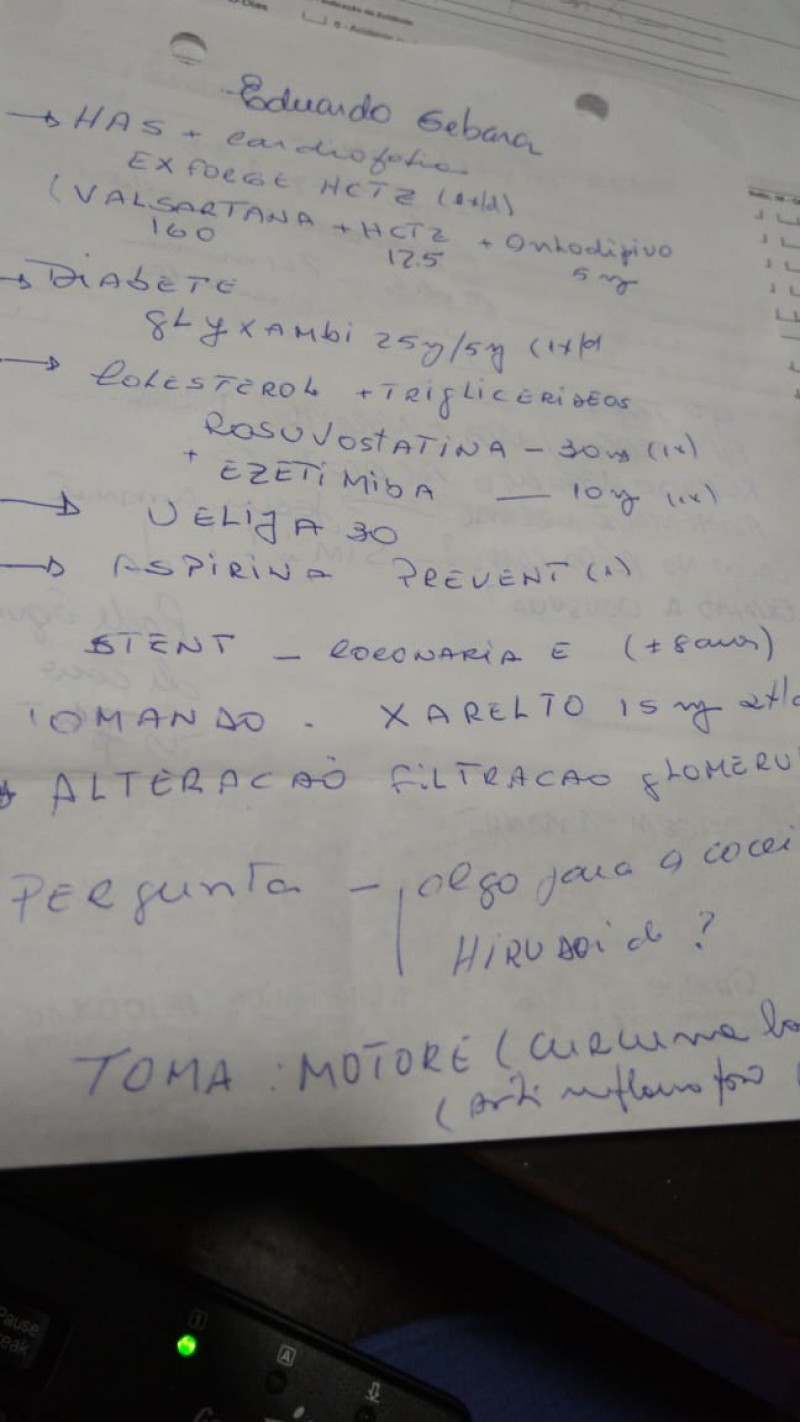 Eduardo Gebara
→ HAS + cardiopatia
EXFORGE HCTZ (1x/d)
(VALSARTANA + HCTZ + Anlodipino
160 12.5 5 mg
→ DIABETE
GLYXAMBI 25mg/5mg (1x/d
→ COLESTEROL + TRIGLICERIDEOS
ROSUVOSTATINA - 30mg (1x)
+ EZETIMIBA — 10mg (1x)
→ VELIJA 30
→ ASPIRINA PREVENT (1)
STENT - CORONARIA E (± 8 anos)
TOMANDO - XARELTO 15 mg 2x/d
ALTERACAO FILTRACAO GLOMERU
PERGUNTA - algo para a cocei
HIRUDOID ?
TOMA : MOTORE (CURCUMA
(Anti inflamatório
Pause